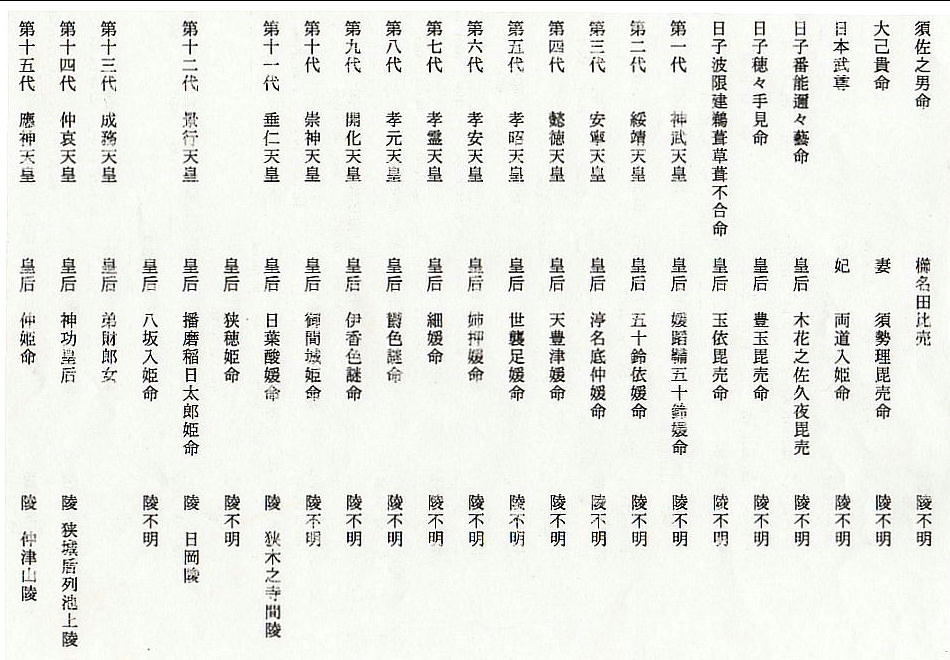 須佐之男命 櫛名田比売 陵不明
大己貴命 妻 須勢理毘売命 陵不明
日本武尊 妃 両道入姫命 陵不明
日子番能邇々藝命 皇后 木花之佐久夜毘売 陵不明
日子穂々手見命 皇后 豊玉毘売命 陵不明
日子波限建鵜葺草葺不合命 皇后 玉依毘売命 陵不明
第一代 神武天皇 皇后 媛蹈鞴五十鈴媛命 陵不明
第二代 綏靖天皇 皇后 五十鈴依媛命 陵不明
第三代 安寧天皇 皇后 渟名底仲媛命 陵不明
第四代 懿徳天皇 皇后 天豊津媛命 陵不明
第五代 孝昭天皇 皇后 世襲足媛命 陵不明
第六代 孝安天皇 皇后 姉押媛命 陵不明
第七代 孝霊天皇 皇后 細媛命 陵不明
第八代 孝元天皇 皇后 欝色謎命 陵不明
第九代 開化天皇 皇后 伊香色謎命 陵不明
第十代 崇神天皇 皇后 御間城姫命 陵不明
第十一代 垂仁天皇 皇后 日葉酸媛命 陵 狭木之寺間陵
皇后 狭穂姫命 陵不明
第十二代 景行天皇 皇后 播磨稲日太郎姫命 陵 日岡陵
皇后 八坂入姫命 陵不明
第十三代 成務天皇 皇后 弟財郎女
第十四代 仲哀天皇 皇后 神功皇后 陵 狭城盾列池上陵
第十五代 應神天皇 皇后 仲姫命 陵 仲津山陵